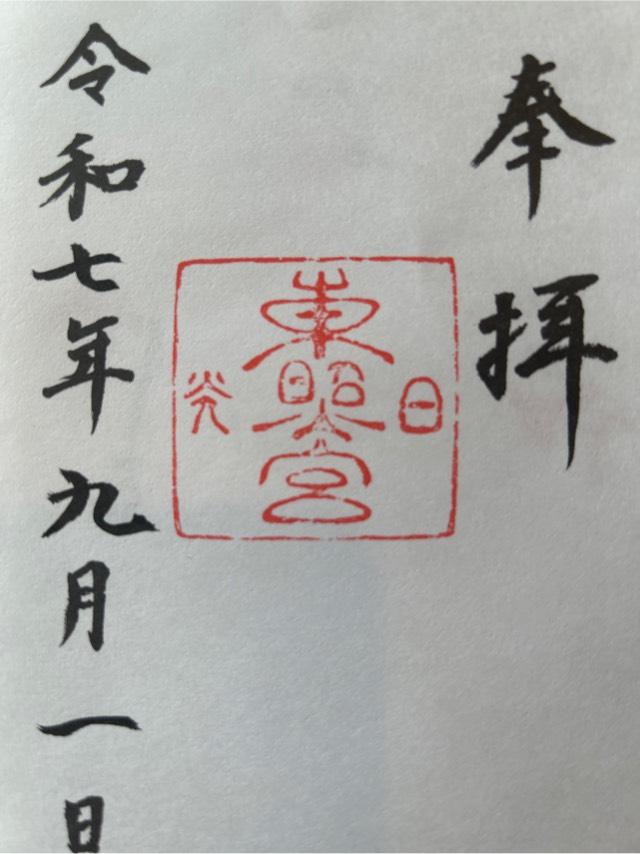 奉拝
日光
東照宮
令和七年九月一日